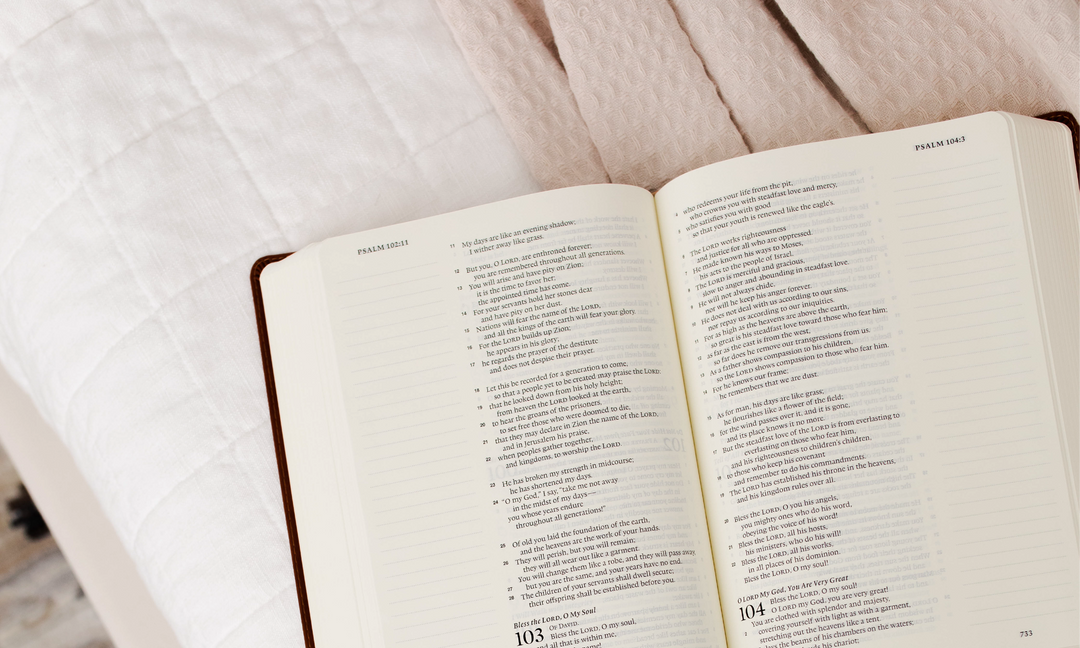 PSALM 102:11
11 My days are like an evening shadow;
I wither away like grass.
12 But you, O LORD, are enthroned forever;
you are remembered throughout all generations.
13 You will arise and have pity on Zion;
it is the time to favor her;
the appointed time has come.
14 For your servants hold her stones dear
and have pity on her dust.
15 Nations will fear the name of the LORD,
and all the kings of the earth will fear your glory.
16 For the LORD builds up Zion;
he appears in his glory;
17 he regards the prayer of the destitute
and does not despise their prayer.
18 Let this be recorded for a generation to come,
so that a people yet to be created may praise the LORD:
19 that he looked down from his holy height;
from heaven the LORD looked at the earth,
20 to hear the groans of the prisoners,
to set free those who were doomed to die,
21 that they may declare in Zion the name of the LORD,
and in Jerusalem his praise,
22 when peoples gather together,
and kingdoms, to worship the LORD.
23 He has broken my strength in midcourse;
he has shortened my days.
24 "O my God," I say, "take me not away
in the midst of my days—
you whose years endure
throughout all generations!"
25 Of old you laid the foundation of the earth,
and the heavens are the work of your hands.
26 They will perish, but you will remain;
they will all wear out like a garment.
You will change them like a robe, and they will pass away,
27 but you are the same, and your years have no end.
28 The children of your servants shall dwell secure;
their offspring shall be established before you.
Bless the LORD, O My Soul
103 OF DAVID.
Bless the LORD, O my soul,
and all that is within me,
name!
PSALM 104:3
who redeems your life from the pit,
who crowns you with steadfast love and mercy,
5 who satisfies you with good
so that your youth is renewed like the eagle's.
6 The LORD works righteousness
and justice for all who are oppressed.
7 He made known his ways to Moses,
his acts to the people of Israel.
8 The LORD is merciful and gracious,
slow to anger and abounding in steadfast love.
9 He will not always chide,
nor will he keep his anger forever.
10 He does not deal with us according to our sins,
nor repay us according to our iniquities.
11 For as high as the heavens are above the earth,
so great is his steadfast love toward those who fear him;
12 as far as the east is from the west,
so far does he remove our transgressions from us.
13 As a father shows compassion to his children,
so the LORD shows compassion to those who fear him.
14 For he knows our frame;
he remembers that we are dust.
15 As for man, his days are like grass;
he flourishes like a flower of the field;
16 for the wind passes over it, and it is gone,
and its place knows it no more.
17 But the steadfast love of the LORD is from everlasting to
everlasting on those who fear him,
and his righteousness to children's children,
18 to those who keep his covenant
and remember to do his commandments.
19 The LORD has established his throne in the heavens,
and his kingdom rules over all.
20 Bless the LORD, O you his angels,
you mighty ones who do his word,
obeying the voice of his word!
21 Bless the LORD, all his hosts,
his ministers, who do his will!
22 Bless the LORD, all his works,
in all places of his dominion.
Bless the LORD, O my soul!
O LORD My God, You Are Very Great
104 Bless the LORD, O my soul!
O LORD my God, you are very great!
You are clothed with splendor and majesty,
2 covering yourself with light as with a garment,
stretching out the heavens like a tent.
lays the beams of his chambers on the waters;
his chariot;
733